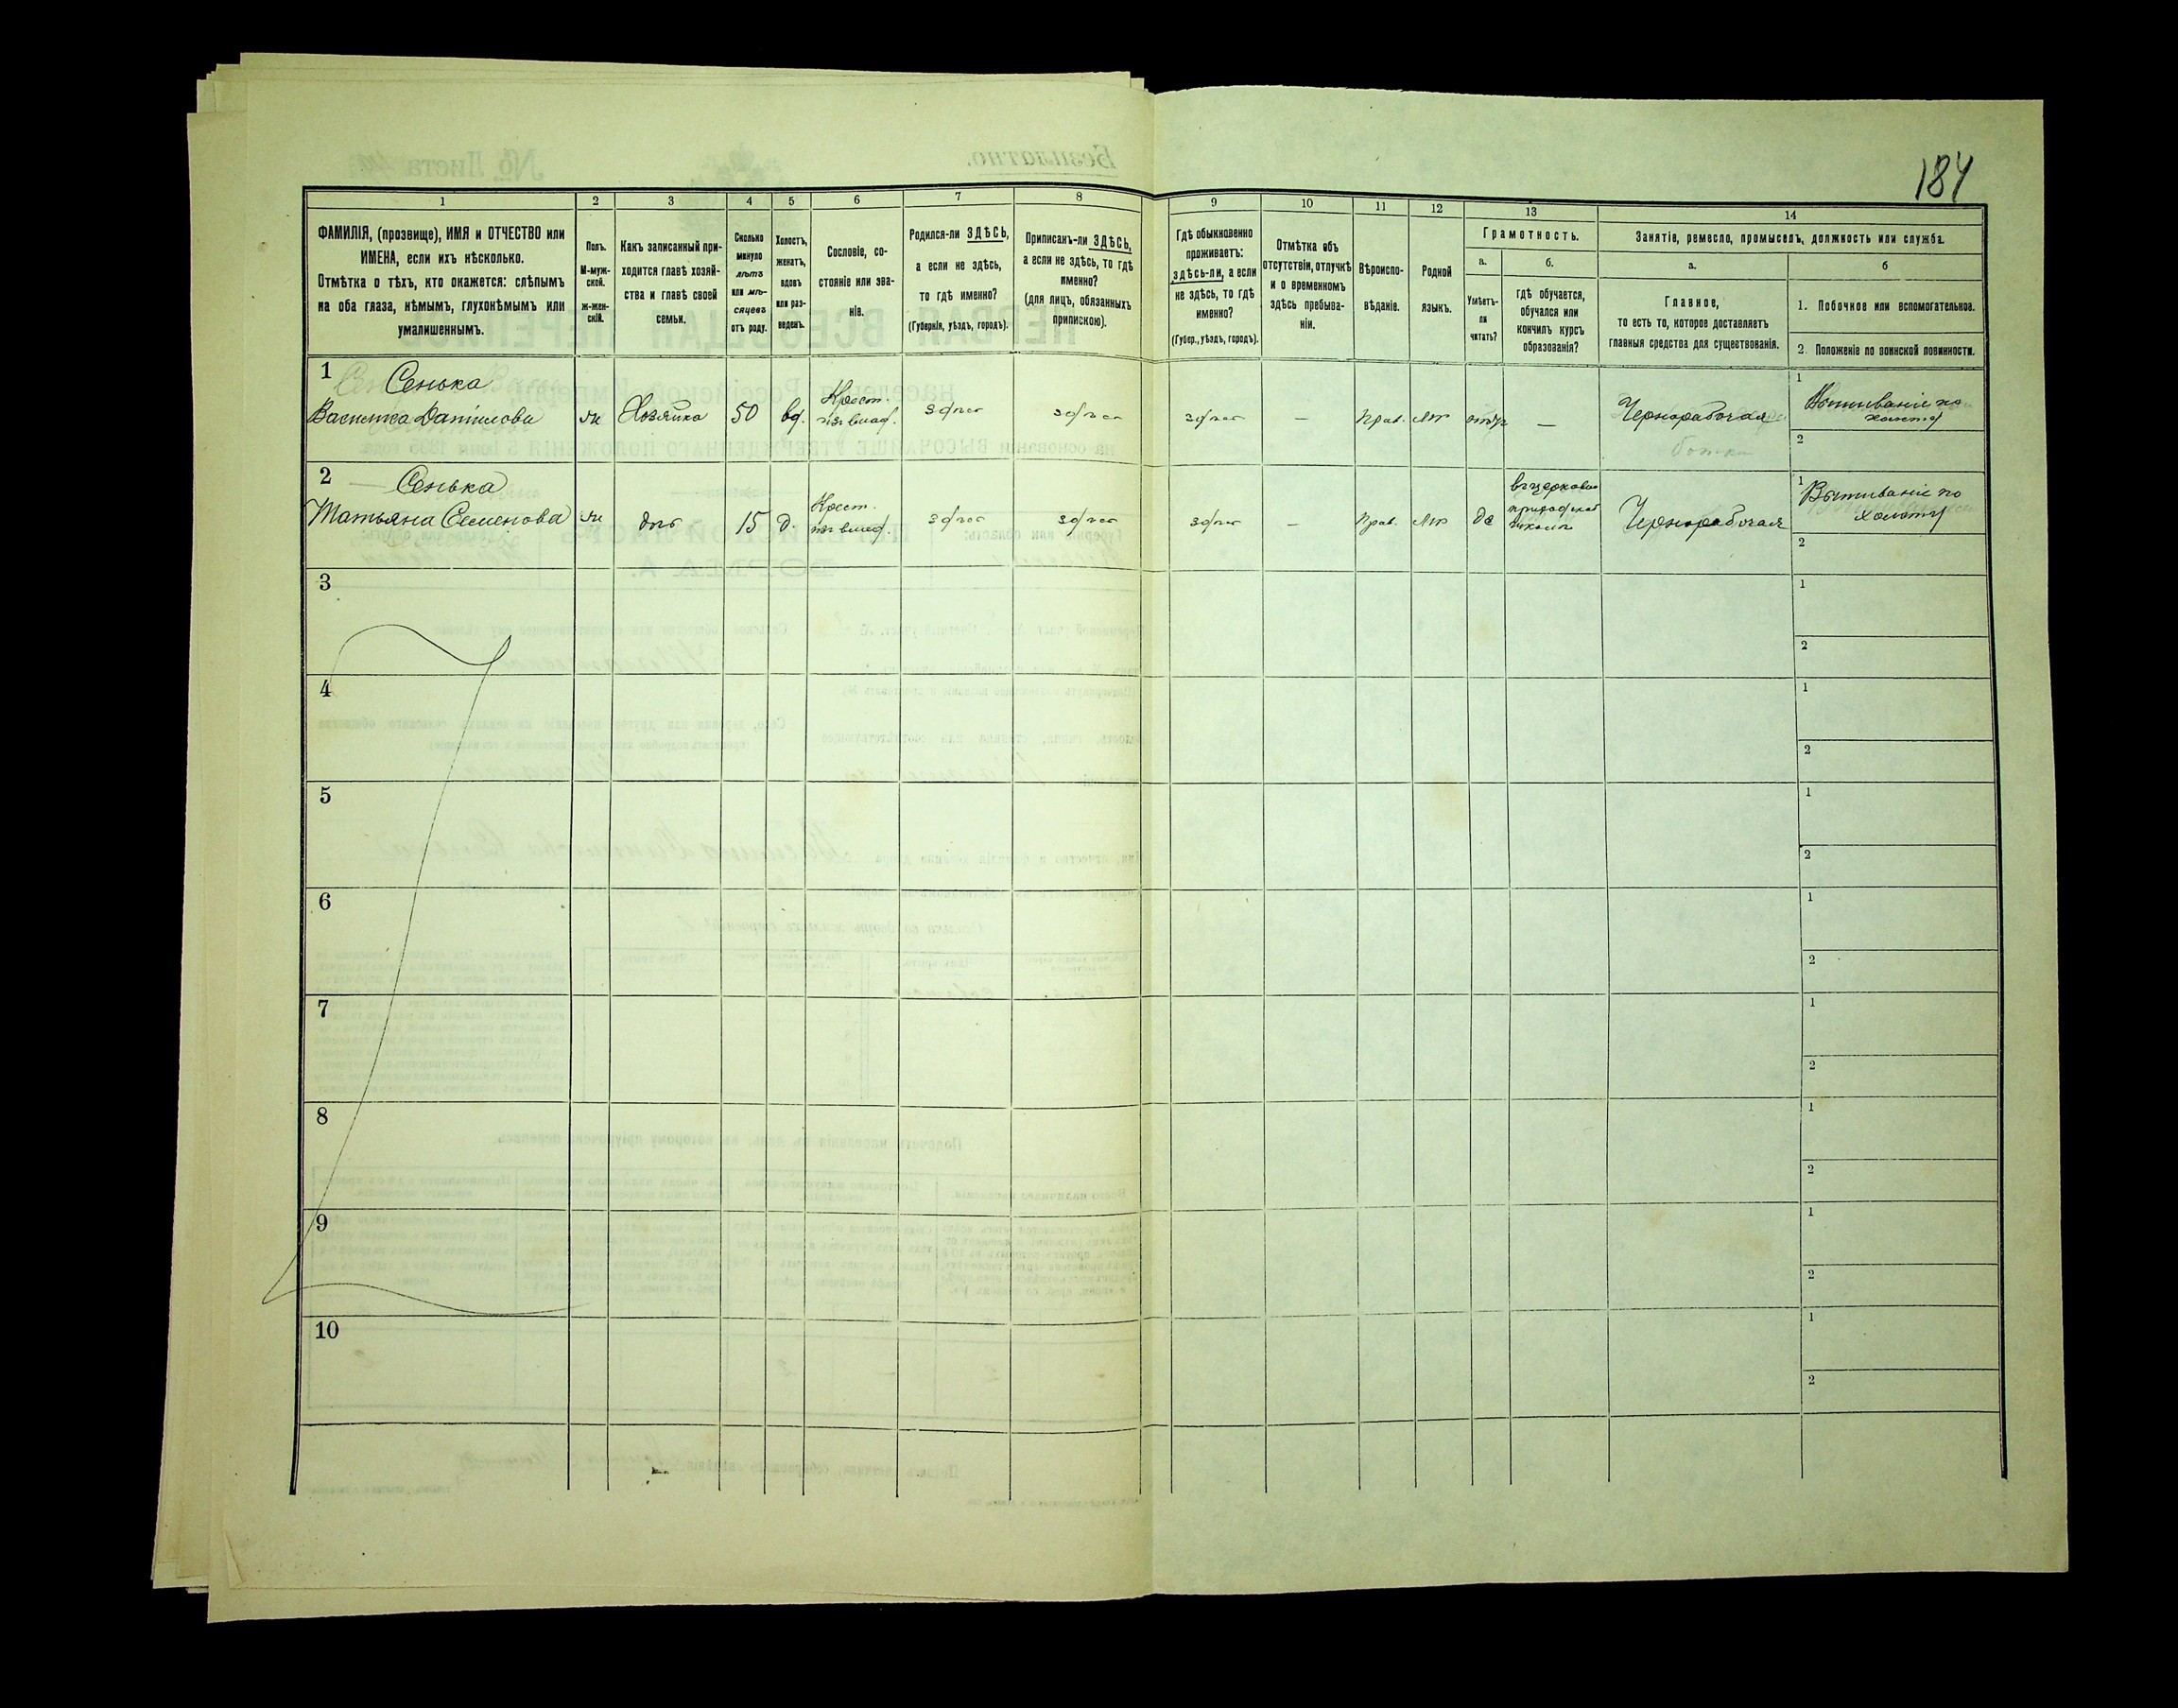 184
1
2
3
4
5
6
7
8
9
10
11
12
13
14
ФАМИЛІЯ, (прозвище), ИМЯ и ОТЧЕСТВО или
ИМЕНА, если ихъ нѣсколько.
Отмѣтка о тѣхъ, кто окажется: слѣпымъ
на оба глаза, нѣмымъ, глухонѣмымъ или
умалишеннымъ.
Полъ.
М-муж-
ской.
ж-жен-
скій.
Какъ записанный при-
ходится главѣ хозяй-
ства и главѣ своей
семьи.
Сколько
минуло
лѣтъ
или мѣ-
сяцевъ
отъ роду.
Холостъ,
женатъ,
вдовъ
или раз-
веденъ.
Сословіе, со-
стояніе или зва-
ніе.
Родился-ли ЗДѢСЬ,
а если не здѣсь,
то гдѣ именно?
(Губернія, уѣздъ, городъ).
Приписанъ-ли ЗДѢСЬ,
а если не здѣсь, то гдѣ
именно?
(для лицъ, обязанныхъ
припискою).
Гдѣ обыкновенно
проживаетъ:
здѣсь-ли, а если
не здѣсь, то гдѣ
именно?
(Губер., уѣздъ, городъ).
Отмѣтка объ
отсутствіи, отлучкѣ
и о временномъ
здѣсь пребыва-
ніи.
Вѣроиспо-
вѣданіе.
Родной
языкъ.
Грамотность.
а.
б.
Умѣетъ-
ли
читать?
гдѣ обучается,
обучался или
кончилъ курсъ
образованія?
Занятіе, ремесло, промыселъ, должность или служба.
а.
б
Главное,
то есть то, которое доставляетъ
главныя средства для существованія.
1. Побочное или вспомогательное.
2. Положеніе по воинской повинности.
1
Сенька
Василиса Данилова
ж
Хозяйка
50
вд.
Крест.
изъ влад.
здѣсь
здѣсь
здѣсь
—
Прав.
Мр
нѣтъ
—
Чернорабочая
1
Вышиваніе по
холсту
2
2
Сенька
Татьяна Семенова
ж
дочь
15
д.
Крест.
изъ влад.
здѣсь
здѣсь
здѣсь
—
Прав.
Мр
да
въ церковно
приходской
школѣ
Чернорабочая
1
Вышиваніе по
холсту
2
3
1
2
4
1
2
5
1
2
6
1
2
7
1
2
8
1
2
9
1
2
10
1
2